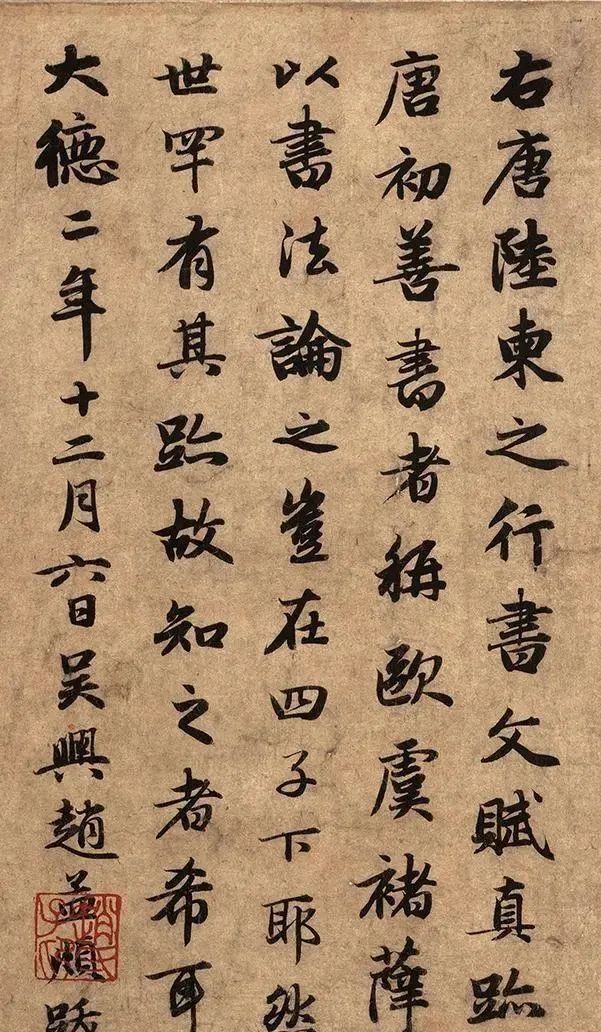 右唐陸柬之行書文賦真跡
唐初善書者稱歐虞褚薛
以書法論之豈在四子下耶然
世罕有其跡故知之者希耳
大德二年十二月六日吴興趙孟頫跋